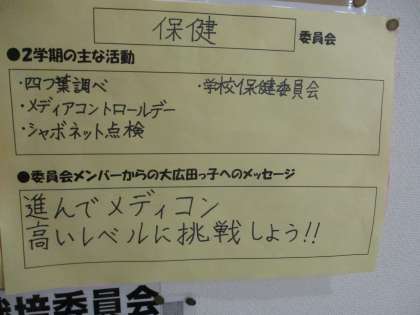 保健 委員会
●2学期の主な活動
・四つ葉調べ ・学校保健委員会
・メディアコントロールデー
・シャボネット点検
●委員会メンバーからの大広田っ子へのメッセージ
進んでメディコン
高いレベルに挑戦しよう!!
培委員会